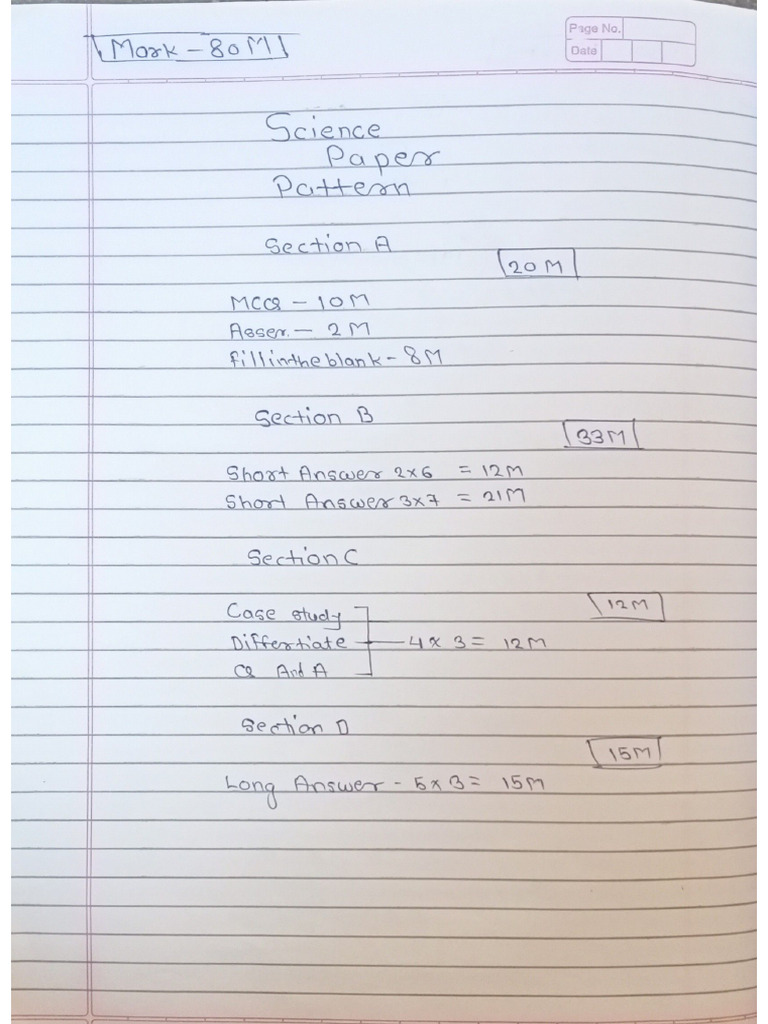 Mark - 80M
Page No.
Date
Science
Paper
Pattern
Section A
20 M
MCQ - 10M
Asser. - 2M
fill in the blank - 8M
Section B
33M
Short Answer 2x6 = 12M
Short Answer 3x7 = 21M
Section C
12M
Case study
Differtiate - 4 x 3 = 12M
Q And A
Section D
15M
Long Answer - 5 x 3 = 15M